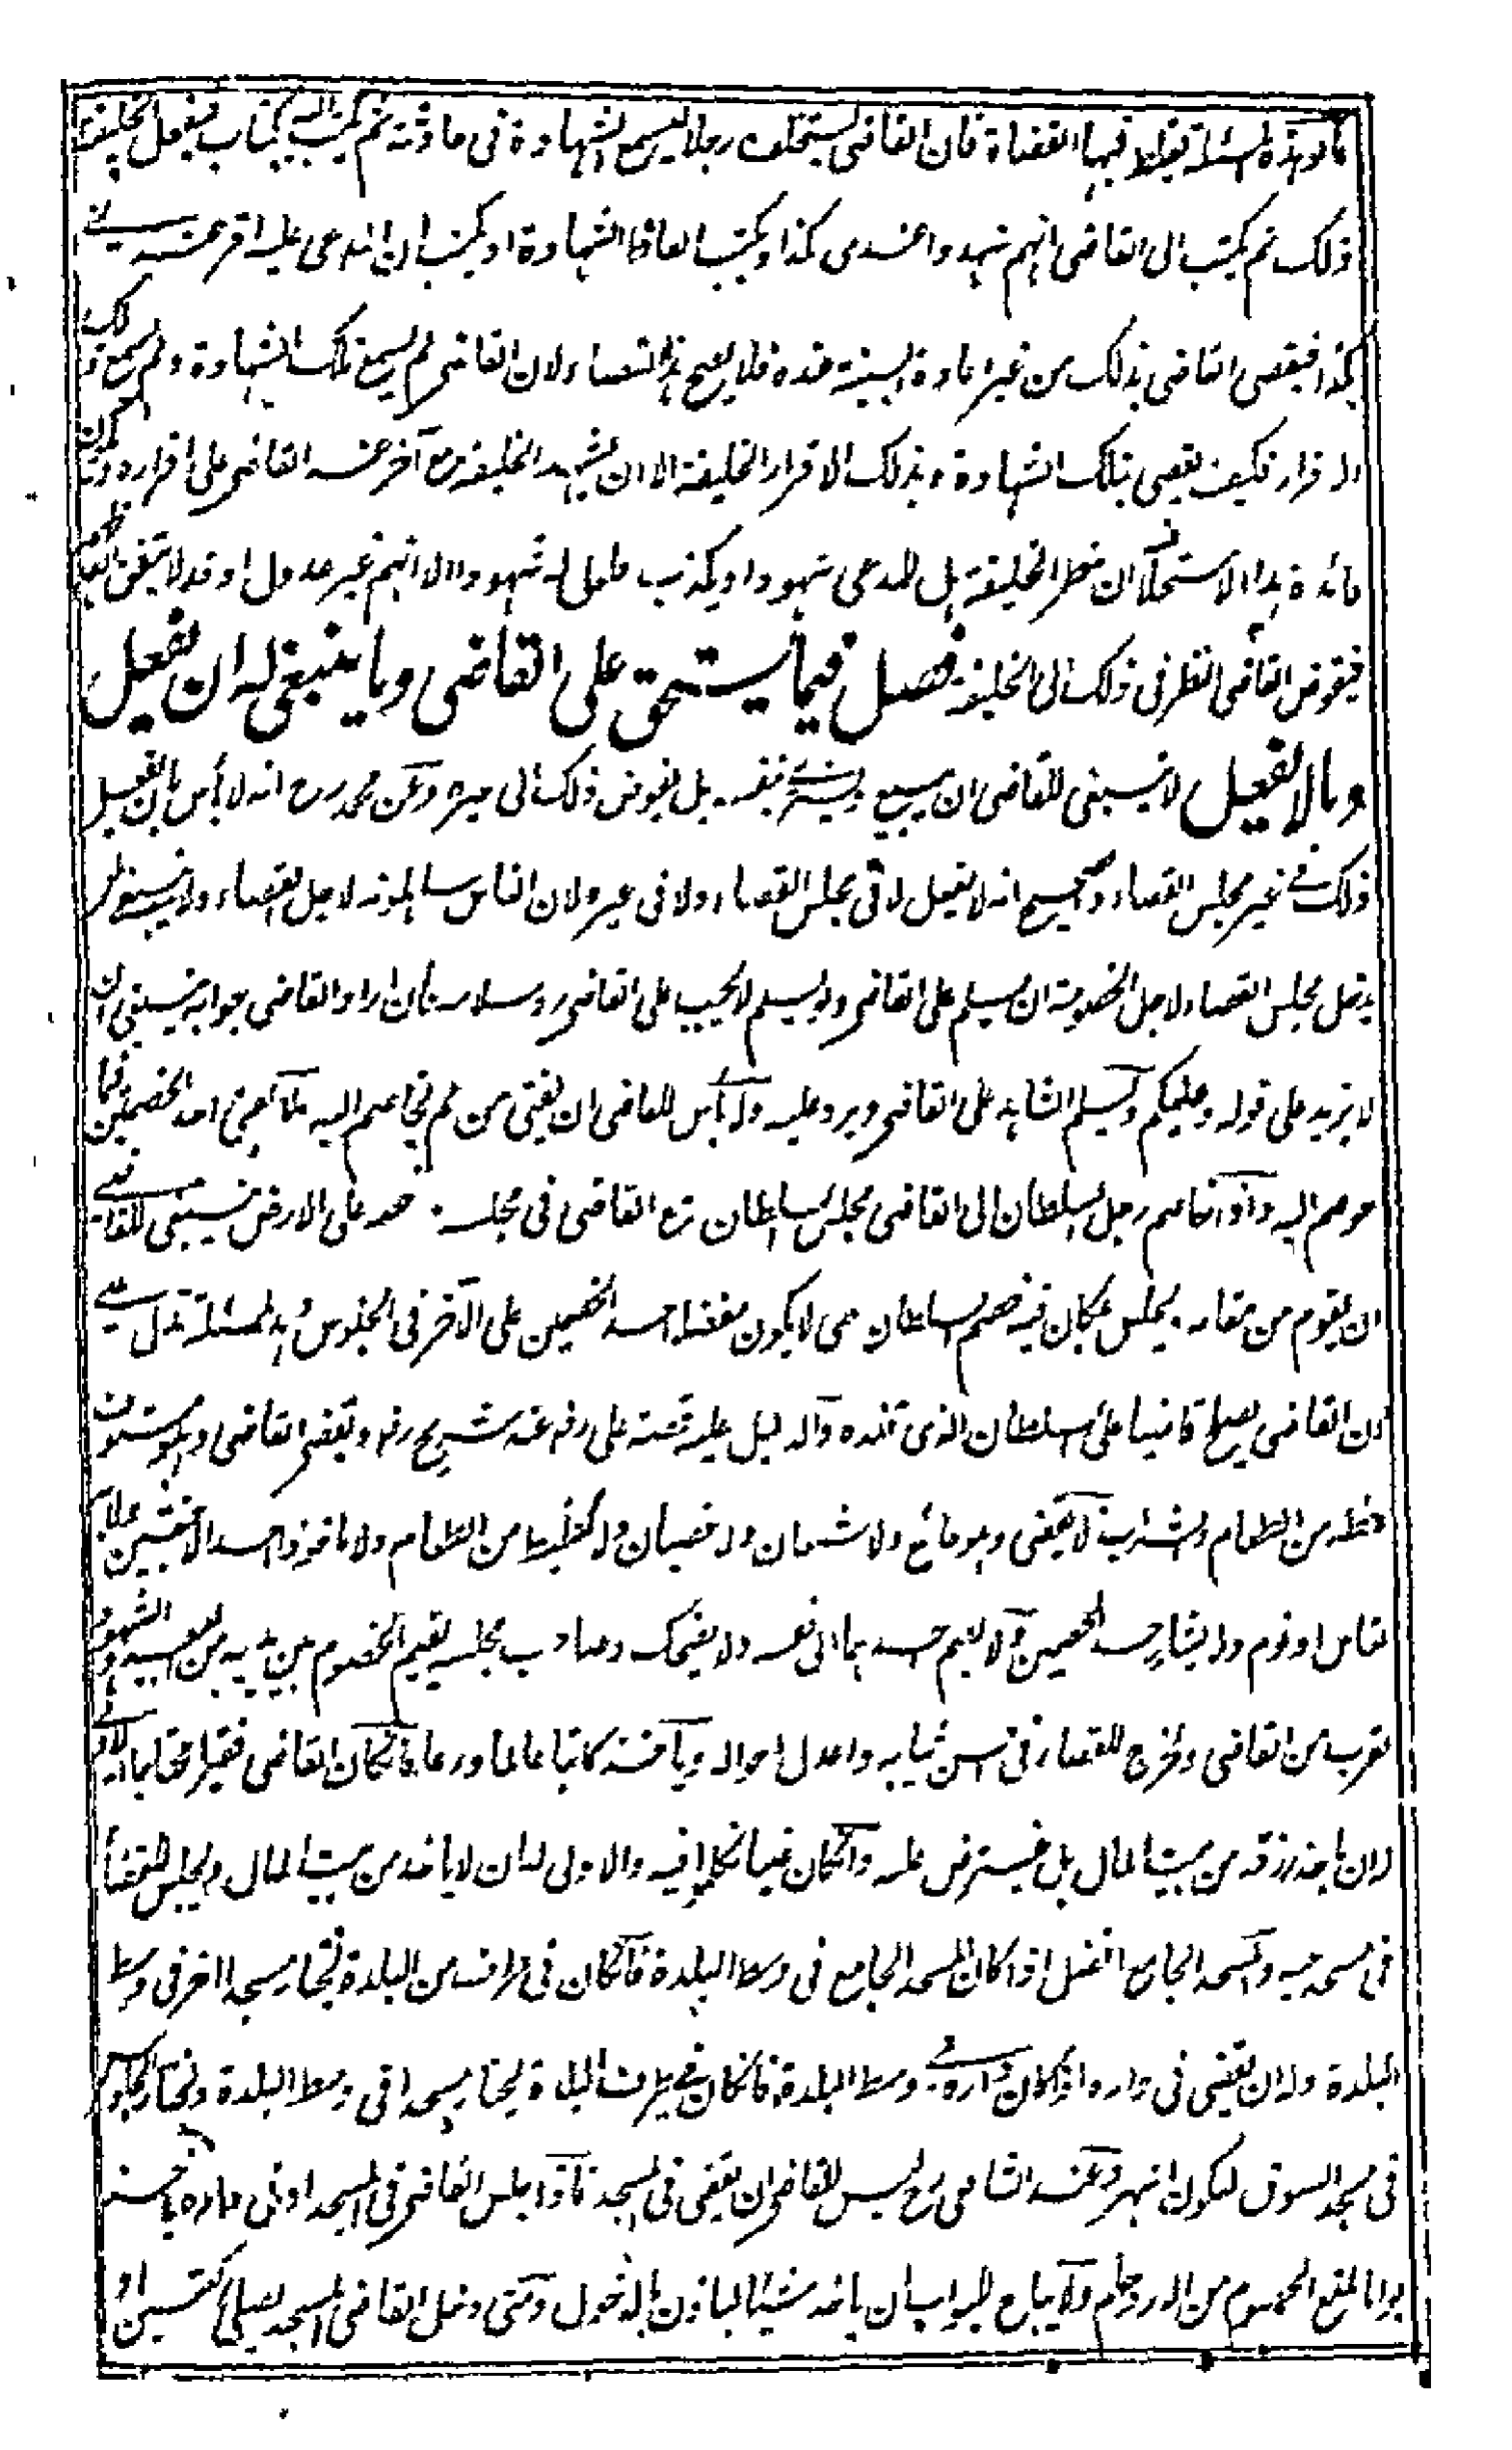 وهذه المسئلة يغلط فيها القضاة فان القاضى يستخلف رجلا ليسمع الشهادة فى حادثة ثم يكتب اليه بكتاب فيفعل الخليفة
ذلك ثم يكتب الى القاضى انهم شهدوا عندى بكذا ويكتب الفاظ الشهادة او يكتب ان المدعى عليه اقر عنده
بكذا فيقضى القاضى بذلك من غير اعادة البينة عنده فلا يصح هذا القضاء لان القاضى لم يسمع تلك الشهادة ولم يسمع ذلك
الاقرار فكيف يقضى بتلك الشهادة وبذلك الاقرار الخليفة الا ان يشهد الخليفة مع آخر عند القاضى على اقراره
فائدة هذا الاستخلاف ان ينظر الخليفة هل للمدعى شهود او يكذب فلعل له شهودا الا انهم غير عدول او قد لا يتفق
فيفوض القاضى النظر فى ذلك الى الخليفة فصل فيما يستحق على القاضى وما ينبغى له ان يفعل
وما لا يفعل لا ينبغى للقاضى ان يبيع ويشترى بنفسه بل يفوض ذلك الى غيره وعن محمد رح انه لا بأس بان يفعل
ذلك فى غير مجلس القضاء والصحيح انه لا يفعل لا فى مجلس القضاء ولا فى غيره لان الناس يساهلونه لاجل القضاء ولا ينبغى لمن
يدخل مجلس القضاء لاجل الخصومة ان يسلم على القاضى ولو سلم لا يجب على القاضى رد سلامه فان اراد القاضى جوابه ينبغى ان
لا يزيد على قوله وعليكم ويسلم الشاهد على القاضى ويرد عليه ولا بأس للقاضى ان يفتى من لم يخاصم اليه ولا يفتى احد الخصمين فيما
خوصم اليه واذا خاصم رجل السلطان الى القاضى فجلس السلطان مع القاضى فى مجلسه وخصمه على الارض ينبغى للقاضى
ان يقوم من مقامه ويجلس بمكان فيه خصم السلطان حتى لا يكون مفضلا احد الخصمين على الآخر فى الجلوس وهذه المسئلة تدل على
ان القاضى يصلح قاضيا على السلطان الذى قلده والدليل عليه قصة على رضى عنه مع شريح رض ويقضى القاضى وهو مستوف
حظه من الطعام والشراب لا يقضى وهو جائع ولا شبعان ولا غضبان ولا كظيظا من الطعام ولا مأخوذ احد الاخبثين
نعاس او نوم ولا يشار احد الخصمين ولا يضم احدهما الى نفسه ولا يضحك وصاحب مجلسه يقيم الخصوم بين يديه من البعيد والشهود
بقرب من القاضى ويخرج للقضاء فى احسن ثيابه واعدل احواله ويأخذ كاتبا عالما ورعا فان كان القاضى فقيرا محتاجا
له ان يأخذ رزقه من بيت المال بل يفترض عليه وان كان غنيا تكلموا فيه والاولى له ان لا يأخذ من بيت المال ويجلس للقضاء
فى مسجد حيه والمسجد الجامع افضل اذا كان المسجد الجامع فى وسط البلدة فان كان فى طرف من البلدة يختار مسجدا آخر فى وسط
البلدة وله ان يقضى فى داره اذا كان داره فى وسط البلدة فان كان فى طرف البلدة يختار مسجدا فى وسط البلدة ويختار الجلوس
فى مسجد السوق ليكون اشهر وعند الشافعى رح ليس للقاضى ان يقضى فى المسجد فاذا جلس القاضى فى المسجد او فى داره يأخذ
بوابا ليمنع الخصوم من الازدحام ولا يباح للبواب ان يأخذ شيئا ليأذن بالدخول ومتى دخل القاضى المسجد يصلى ركعتين او